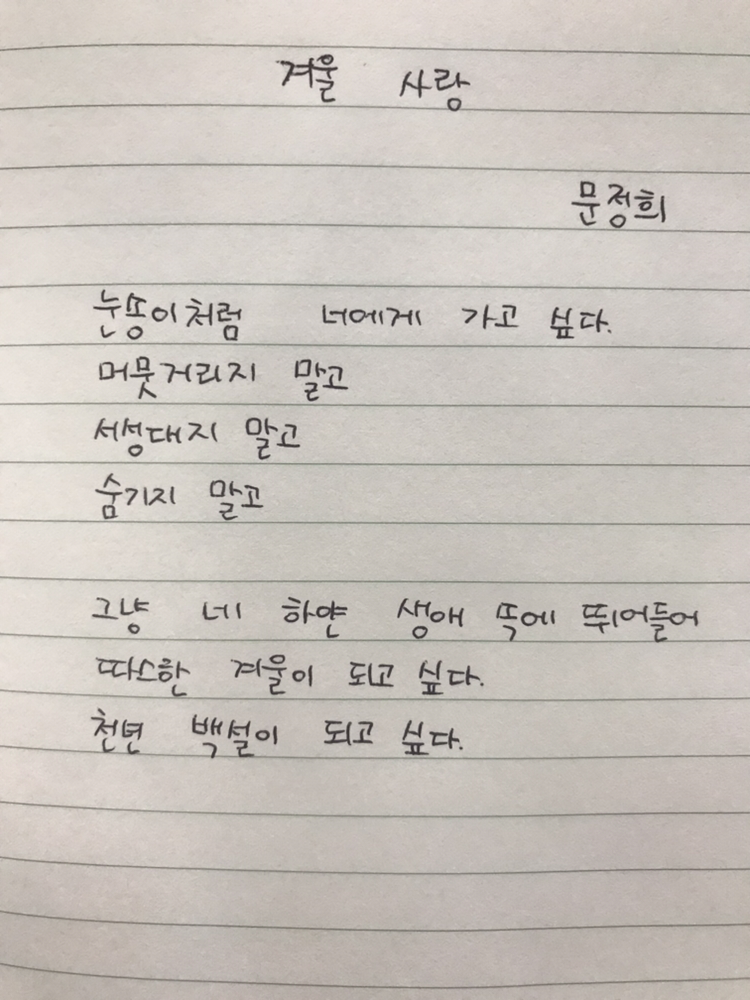 겨울 사랑
문정희
눈송이처럼 너에게 가고 싶다.
머뭇거리지 말고
서성대지 말고
숨기지 말고
그냥 네 하얀 생애 뚝에 뛰어들어
따스한 겨울이 되고 싶다.
천년 백설이 되고 싶다.